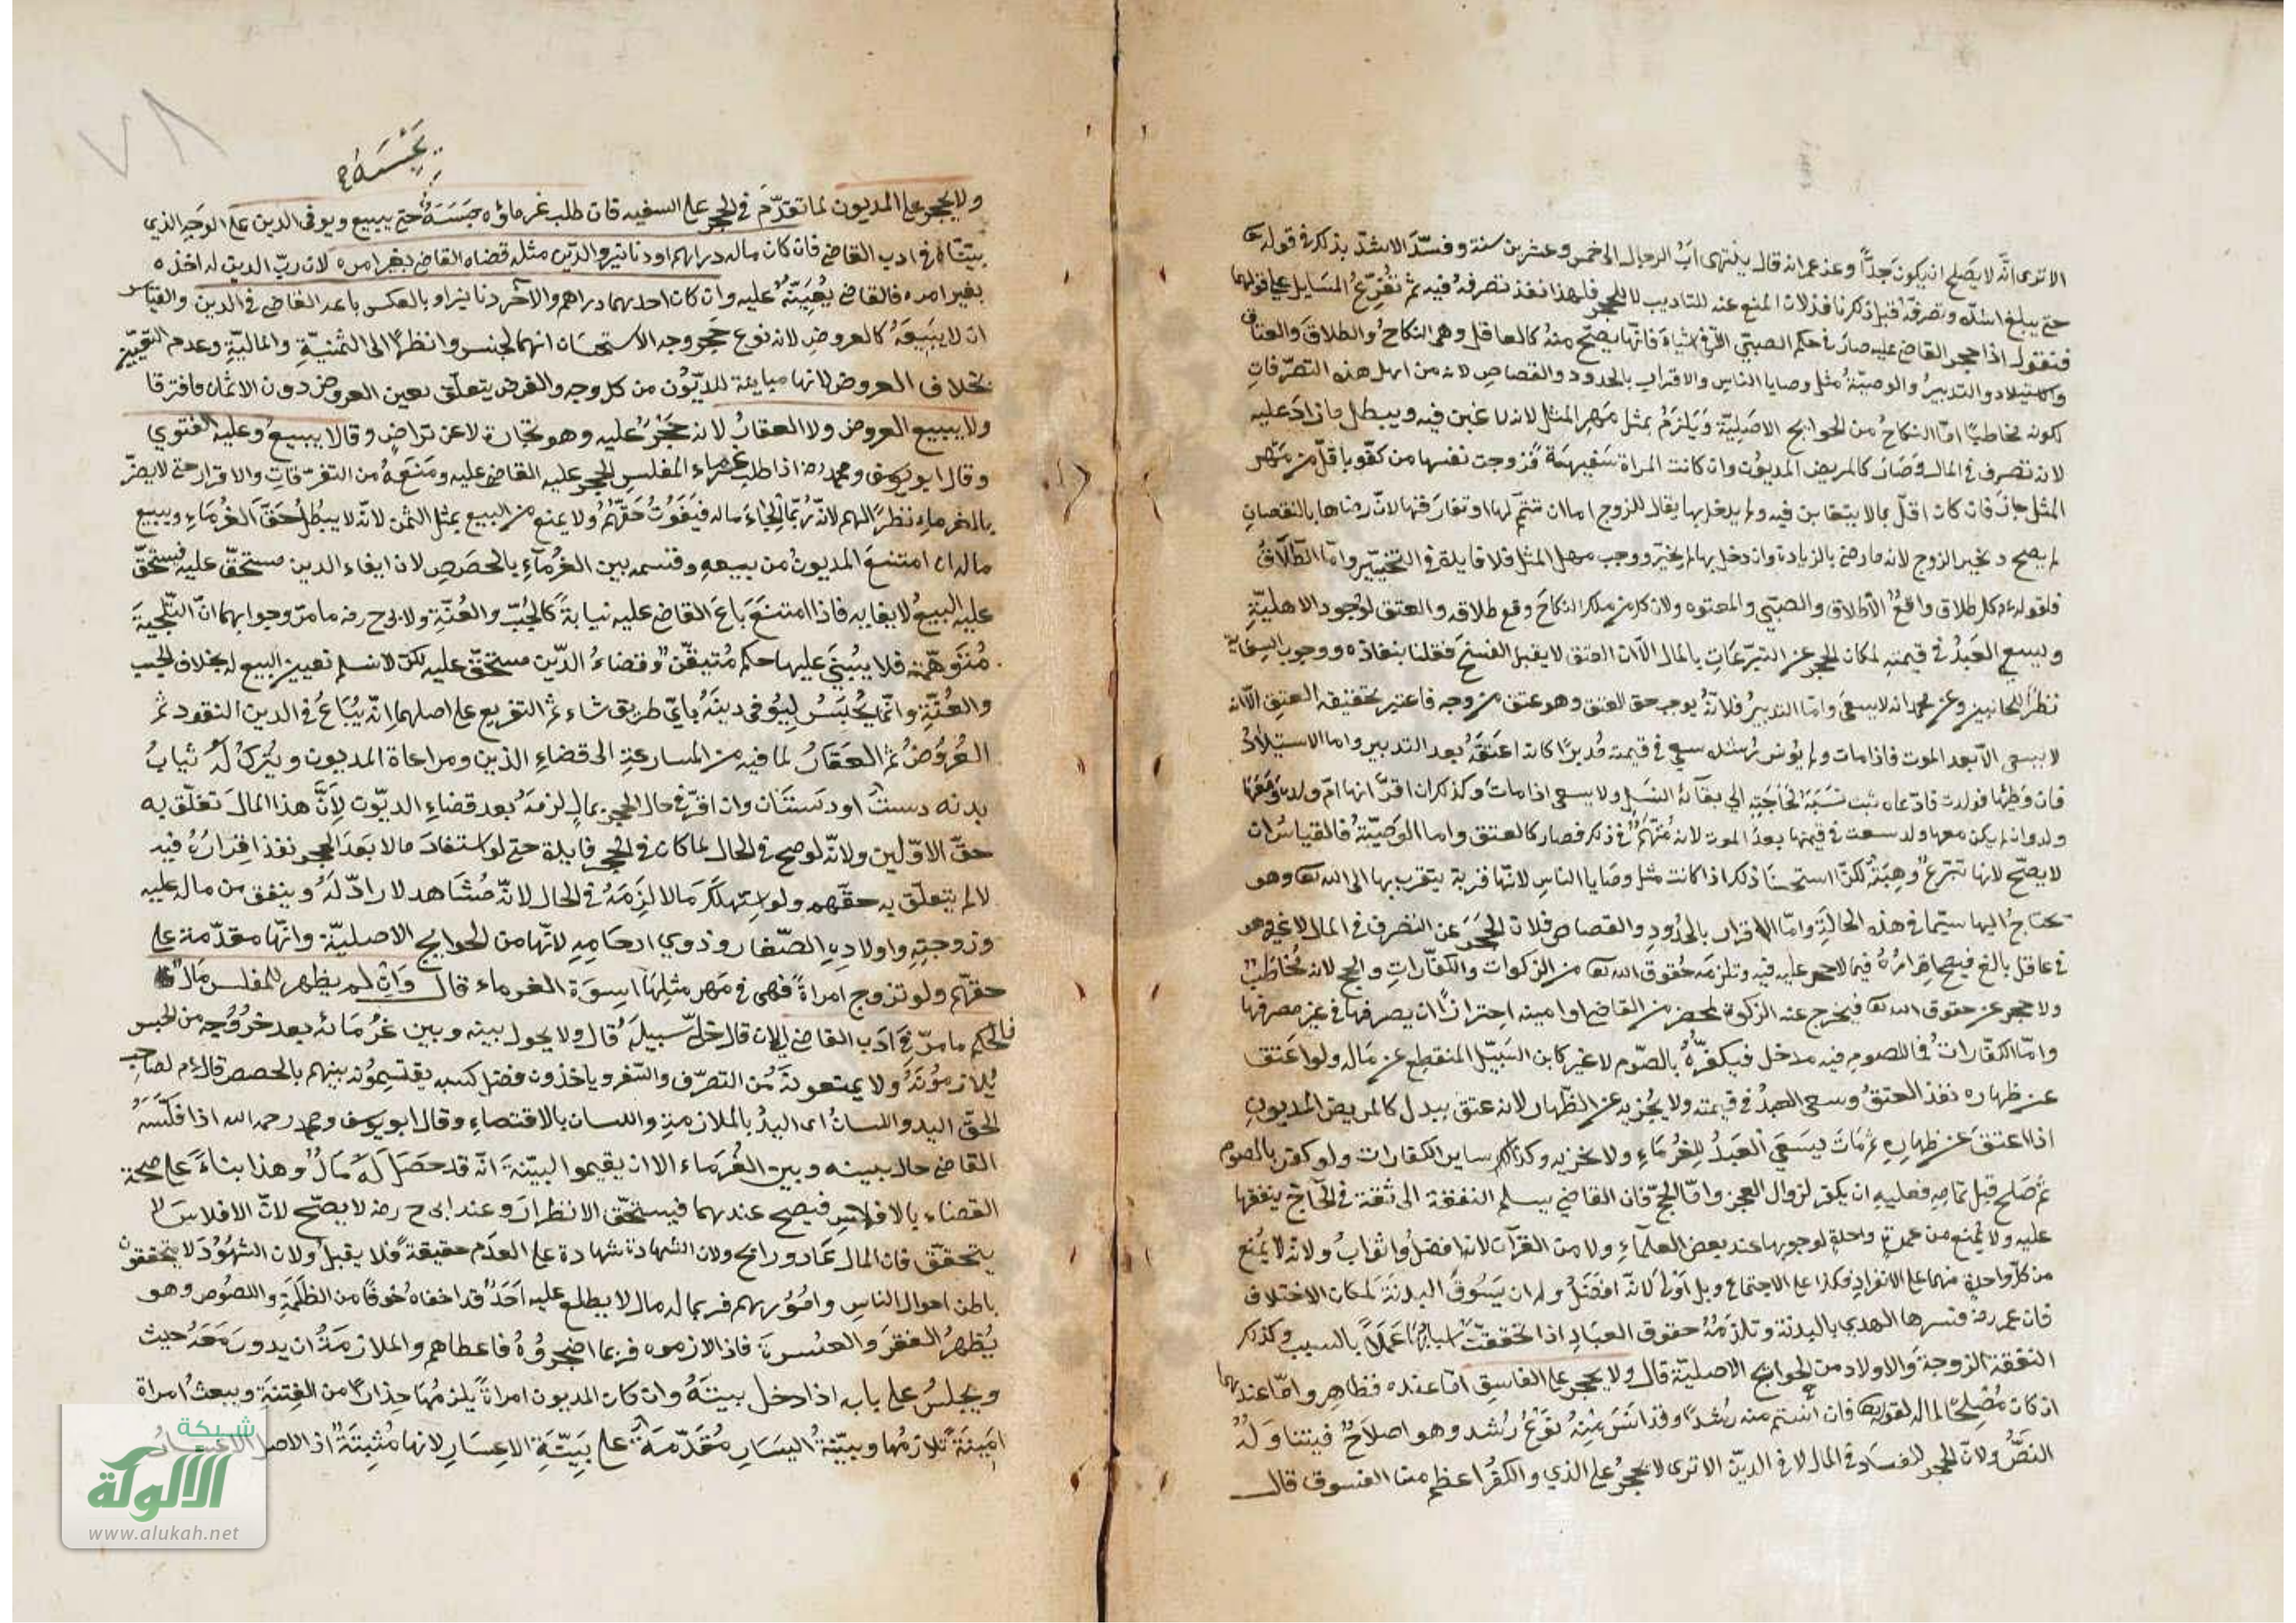 الا ترى انّه لا يصلح ان يكون جَدًّا وعن عمر انه قال ينتهى لبّ الرجال الى خمس وعشرين سنة وفسّر الاشدّ بذلك في قوله تع
حتى يبلغ اشدّه وتصرفه قبل ذلك نافذ لان المنع عنه للتاديب لا للحجر فلهذا نفذ تصرفه فيه ثم تفرّع المسايل على قولهما
فنقول اذا حجر القاضى عليه صار في حكم الصبيّ الا في اشياء فانها يصحّ منه كالعاقل وهى النكاح والطلاق والعتاق
والاستيلاد والتدبير والوصيّة مثل وصايا الناس والاقرار بالحدود والقصاص لانه من اهل هذه التصرّفات
لكونه مخاطبًا امّا النكاح من الحوايج الاصليّة ويلزم بمثل مهر المثل لانه لا غبن فيه ويبطل ما زاد عليه
لانه تصرف في المال وصار كالمريض المديون وان كانت المراة سفيهة فزوجت نفسها من كفو باقلّ من مهر
المثل جاز فان كان اقلّ بما لا يتغابن فيه ولم يدخل بها يقال للزوج اما ان تتمّ لها او تفارقها لانّ رضاها بالنقصان
لم يصح ويخير الزوج لانه ما رضى بالزيادة وان دخل بها لم يخيّر ووجب مهر المثل فلا فايدة في التخيير وامّا الطلاق
فلقوله ءم كل طلاق واقع الا طلاق الصبيّ والمعتوه ولان كل من ملك النكاح وقع طلاقه والعتق لوجود الاهليّة
ويسعى العبد في قيمته لمكان الحجر عن التبرّعات بالمال الّا ان العتق لا يقبل الفسخ فقلنا بنفاذه ووجوب السعاية
نظرًا للجانبين وعن محمد انه لا يسعى وامّا التدبير فلانّه يوجب حق العتق وهو عتق من وجه فاعتبر بحقيقة العتق الّا انه
لا يسعى الّا بعد الموت فاذا مات ولم يؤنس رشده سعى في قيمته مدبرًا كانه اعتقه بعد التدبير واما الاستيلاد
فان وطئها فولدت فادّعاه ثبت نسبه لحاجته الى بقآء النسل ولا يسعى اذا مات وكذلك ان اقرّ انها امّ ولده ومعها
ولد وان لم يكن معها ولد سعت في قيمتها بعد الموت لانه متّهم في ذلك فصار كالعتق واما الوصيّة فالقياس ان
لا يصحّ لانها تبرّع وهبة لكنّا استحسنا ذلك اذا كانت مثل وصايا الناس لانّها قربة يتقرب بها الى الله تع وهو
محتاج اليها سيّما في هذه الحالة وامّا الاقرار بالحدود والقصاص فلان الحجر عن التصرف في المال لا غير وهو
في عاقل بالغ فيصح اقراره فيما لا حجر عليه فيه وتلزمه حقوق الله تع من الزكوات والكفّارات والحج لانه مخاطب
ولا حجر عن حقوق الله تع فيخرج عنه الزكوة بمحضر من القاضى او امينه احترازًا ان يصرفها في غير مصرفها
وامّا الكفّارات فاللصوم فيه مدخل فيكفّر بالصّوم لا غير كابن السّبيل المنقطع عن ماله ولو اعتق
عن ظهاره نفذ العتق وسعى العبد في قيمته ولا يجزيه عن الظهار لانه عتق ببدل كالمريض المديون
اذا اعتق عن ظهاره ثم مات يسعى العبد للغرماء ولا يجزيه وكذلك ساير الكفارات ولو كفر بالصوم
ثم صلح قبل تمامه فعليه ان يكفر لزوال العجز وامّا الحجّ فان القاضى يسلم النفقة الى ثقة في الحاجّ ينفقها
عليه ولا يمنع من عمرة واحدة لوجوبها عند بعض العلماء ولا من القرآن لانه افضل واثواب ولانه لا يمنع
من كلّ واحدة منهما على الانفراد فكذا على الاجتماع وبل اولى لانّه افضل وله ان يسوق البدنة لمكان الاختلاف
فان عمر رضه فسرها الهدى بالبدنة وتلزمه حقوق العباد اذا تحققت اسبابها عملًا بالسبب وكذلك
النفقة الزوجة والاولاد من الحوايج الاصليّة قال ولا يحجر على الفاسق امّا عنده فظاهر وامّا عندهما
اذ كان مصلحًا لماله لقوله تع فان آنستم منهم رشدًا وقد انس منه نوع رشد وهو اصلاح فيتناوله
النصّ ولانّ الحجر للفساد في المال لا في الدين الا ترى لا يحجر على الذمى والكفر اعظم من الفسوق قال
يَحْبِسَهُ
٧٨
ولا يحجر على المديون لما تقدّم في الحجر على السفيه فان طلب غرماؤه حبسه حتى يبيع ويوفى الدين على الوجه الذي
بيّناه في ادب القاضى فان كان ماله دراهم او دنانير والدّين مثله قضاه القاضى بغير امره لانّ ربّ الدين له اخذه
بغير امره فالقاضى يعينه عليه وان كان احدهما دراهم والاخر دنانير او بالعكس باعه القاضى في الدين والقياس
ان لا يبيعه كالعروض لانه نوع حجر وجه الاستحسان انهما لجنس وانظرًا الى الثمنيّة والماليّة وعدم التعيين
بخلاف العروض لانها مباينة للديّون من كل وجه والغرض يتعلّق بعين العروض دون الاثمان فافترقا
ولا يبيع العروض ولا العقار لانه حجر عليه وهو تجارة لا عن تراض وقالا يبيع وعليه الفتوى
وقال ابو يوسف ومحمد رضه اذا طلب غرماء المفلس الحجر عليه القاضى عليه ومنعه من التصرّفات والاقرار حتى لا يضرّ
بالغرماء نظرًا لهم لانّه ربّما الجاء ماله فيفوت حقّهم ولا يمنع من البيع بمثل الثمن لانّه لا يبطل حقّ الغرماء ويبيع
ماله ان امتنع المديون من بيعه وقسمه بين الغرمآء بالحصص لان ايفاء الدين مستحقّ عليه فيستحقّ
عليه البيع لايفايه فاذا امتنع باع القاضى عليه نيابة كالجُبّ والعُنّة ولابى ح رضه ما مرّ وجوابهما انّ التلجية
متوهّمة فلا يبتنى عليها حكم متيقّن وقضاء الدّين مستحقّ عليه لكن لا نسلم تعيين البيع له بخلاف الجب
والعنّة وانّما يحبس ليوفى دينه بايّ طريق شاء ثم التفريع على اصلهما انّه يباع في الدين النقود ثم
العروض ثم العقار لما فيه من المسارعة الى قضاء الدين ومراعاة المديون ويترك له ثياب
بدنه دست او دستان وان اقرّ في حال الحجر بمال لزمه بعد قضاء الديون لأنّ هذا المال تعلّق به
حقّ الاوّلين ولانّه لو صح في الحال لما كان في الحجر فايدة حتى لو استفاد مالا بعد الحجر نفذ اقراره فيه
لا لم يتعلّق به حقّهم ولو استهلك مالا لزمه في الحال لانّه مشاهد لا رادّ له وينفق من ماله عليه
وزوجته واولاده الصّغار وذوي ارحامه لانّها من الحوايج الاصليّة وانّها مقدّمة على
حقّهم ولو تزوج امراة فهى في مهر مثلها اسوة الغرماء قال وان لم يظهر للمفلس مال
فالحكم ما مرّ في ادب القاضى الى ان قال خلّى سبيله قال ولا يحول بينه وبين غرمائه بعد خروجه من الحبس
يلازمونه ولا يمنعونه من التصرّف والسّفر وياخذون فضل كسبه يقتسمونه بينهم بالحصص قال ءم لصاحب
الحقّ اليد واللسان اى اليد بالملازمة واللسان بالاقتضاء وقال ابو يوسف ومحمد رحمه الله اذا فلّسه
القاضى حال بينه وبين الغرماء الا ان يقيموا البيّنة انّه قد حصل له مال وهذا بناء على صحة
القضاء بالافلاس فيصح عندهما فيستحقّ الانظار وعند ابى ح رضه لا يصحّ لانّ الافلاس لا
يتحقّق فان المال غاد ورائح ولان الشهادة شهادة على العدم حقيقة فلا يقبل ولان الشهود لا يتحققون
باطن احوال الناس وامورهم فربما له مال لا يطلع عليه احد قد اخفاه خوفًا من الظلمة واللصوص وهو
يظهر الفقر والعسرة فاذا لازموه فربما اضجروه فاعطاهم والملازمة ان يدور معه حيث
ويجلس على بابه اذا دخل بيته وان كان المديون امراة يلزمها حذارًا من الفتنة ويبعث امراة
امينة تلازمها وبيّنة اليسار مقدّمة على بيّنة الاعسار لانها مثبتة اذ الاصل الاعسار
شبكة
الألوكة
www.alukah.net